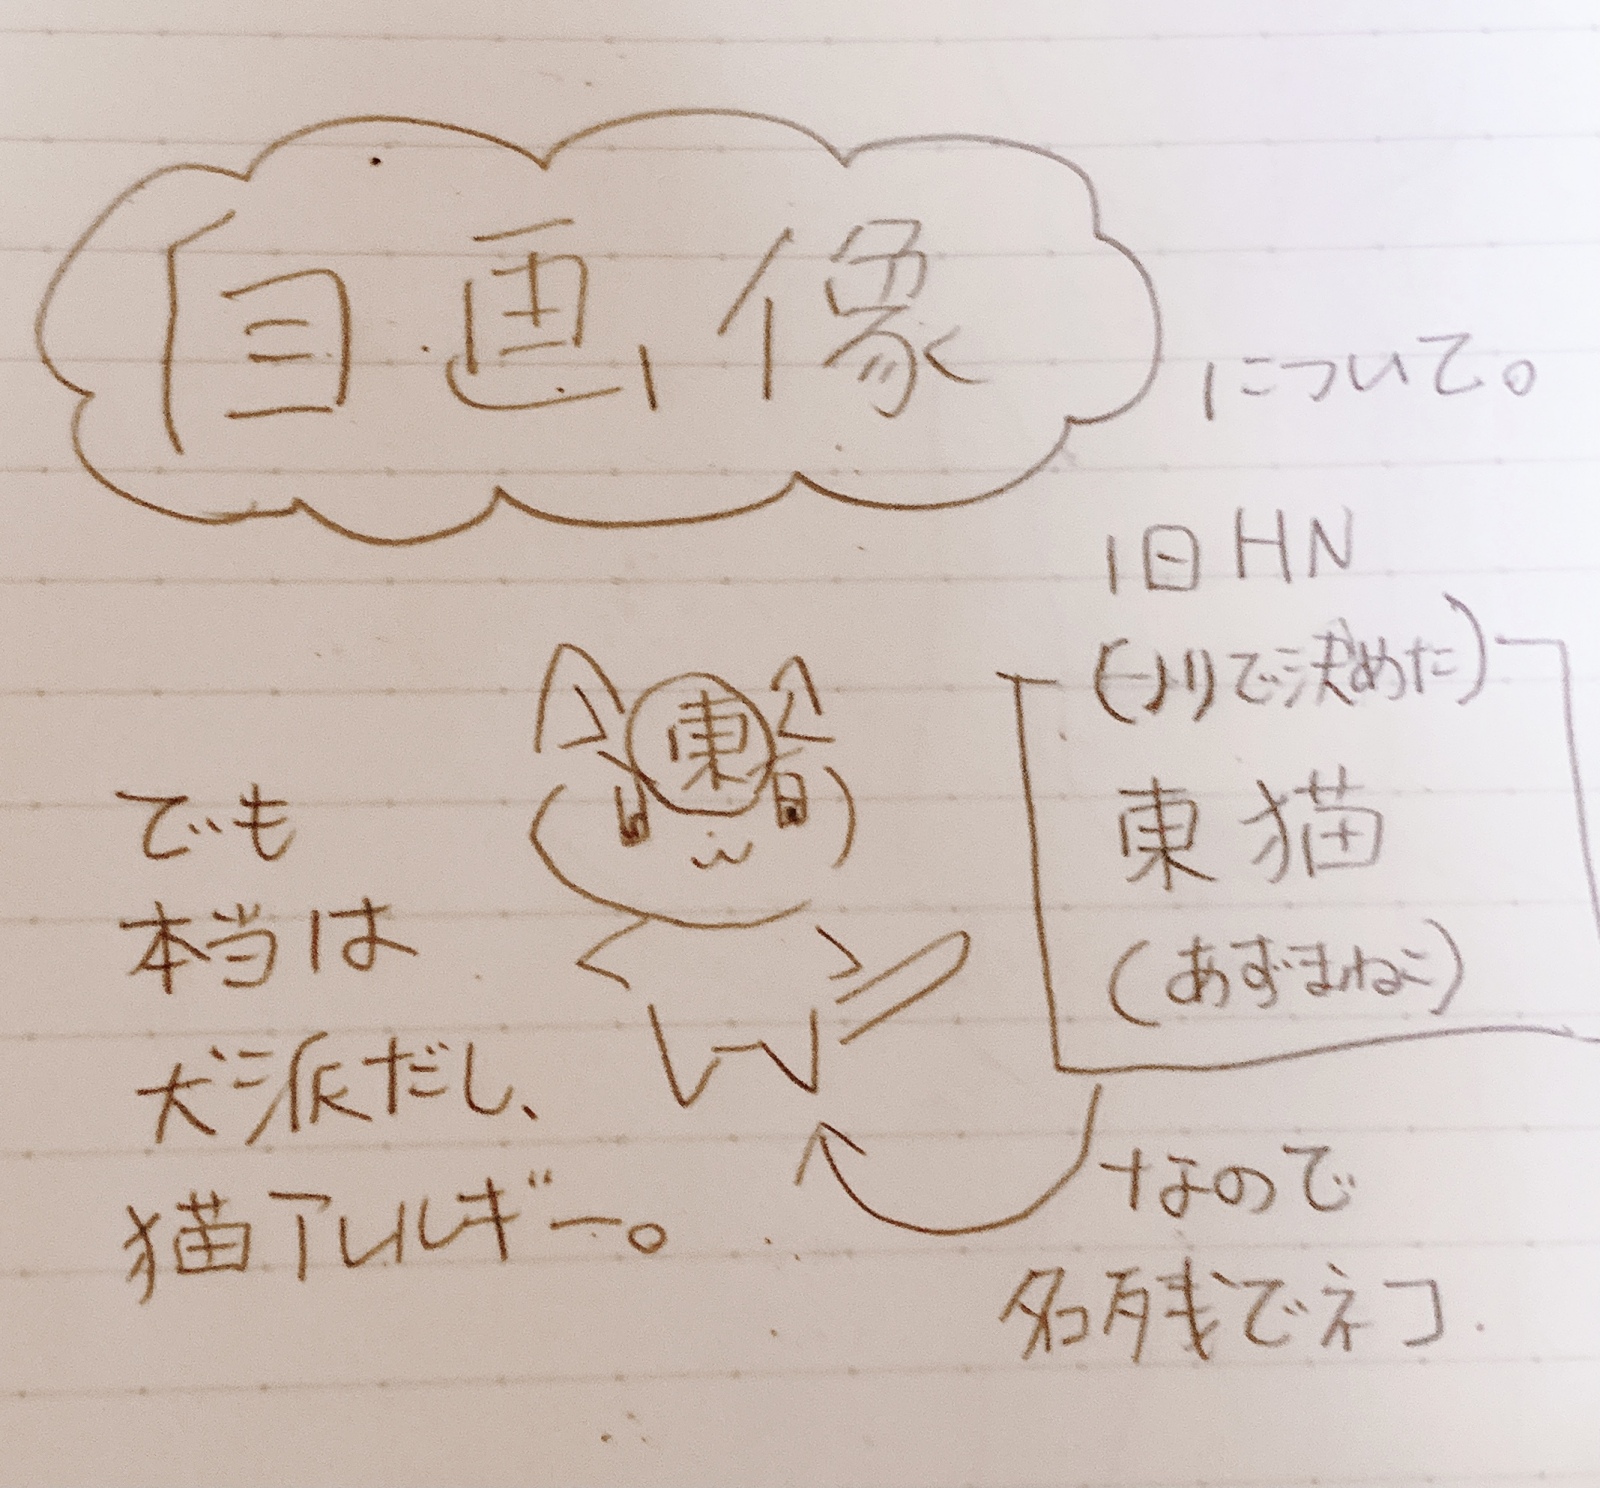 自画像について。
旧HN
(ノリで決めた)
東猫
(あずまねこ)
東
なので
名残でネコ.
でも
本当は
犬派だし、
猫アレルギー。